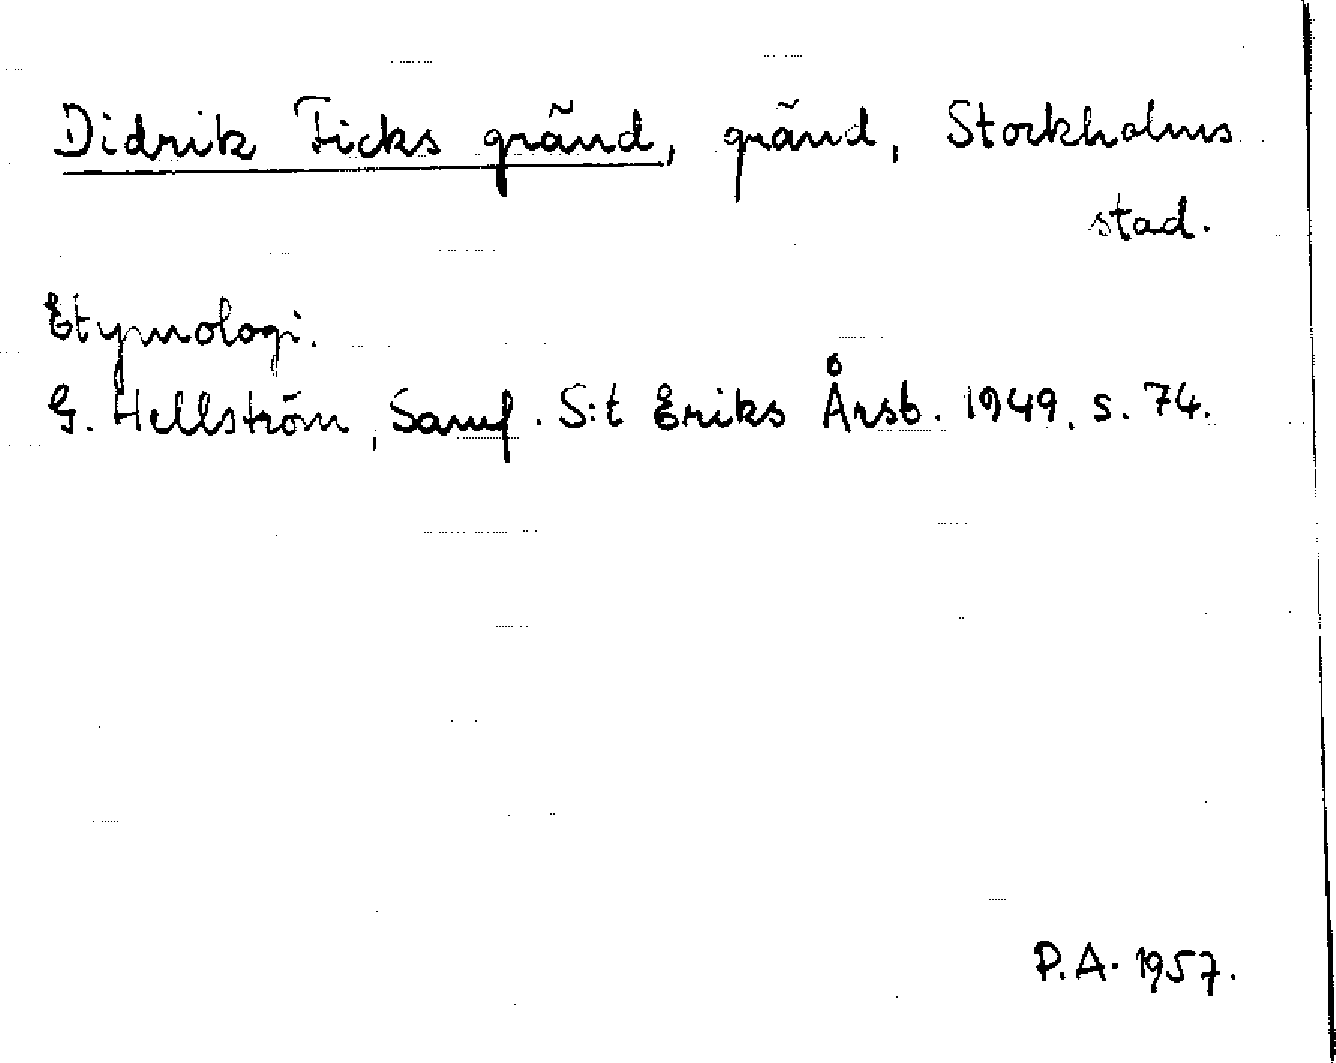 Didrik Ficks gränd, gränd, Stockholms
stad.
Etymologi.
G. Hellström, Samf. S:t Eriks Årsb. 1949, s. 74.
P.A. 1957.